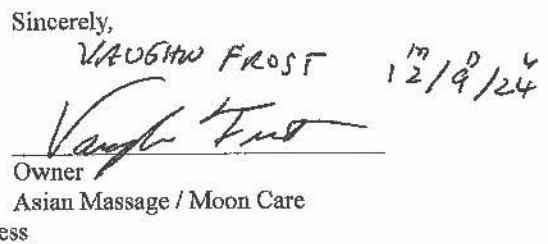 Sincerely,
VAUGHN FROST 12/9/24
M D Y
Vaughn Frost
Owner
Asian Massage / Moon Care
ess